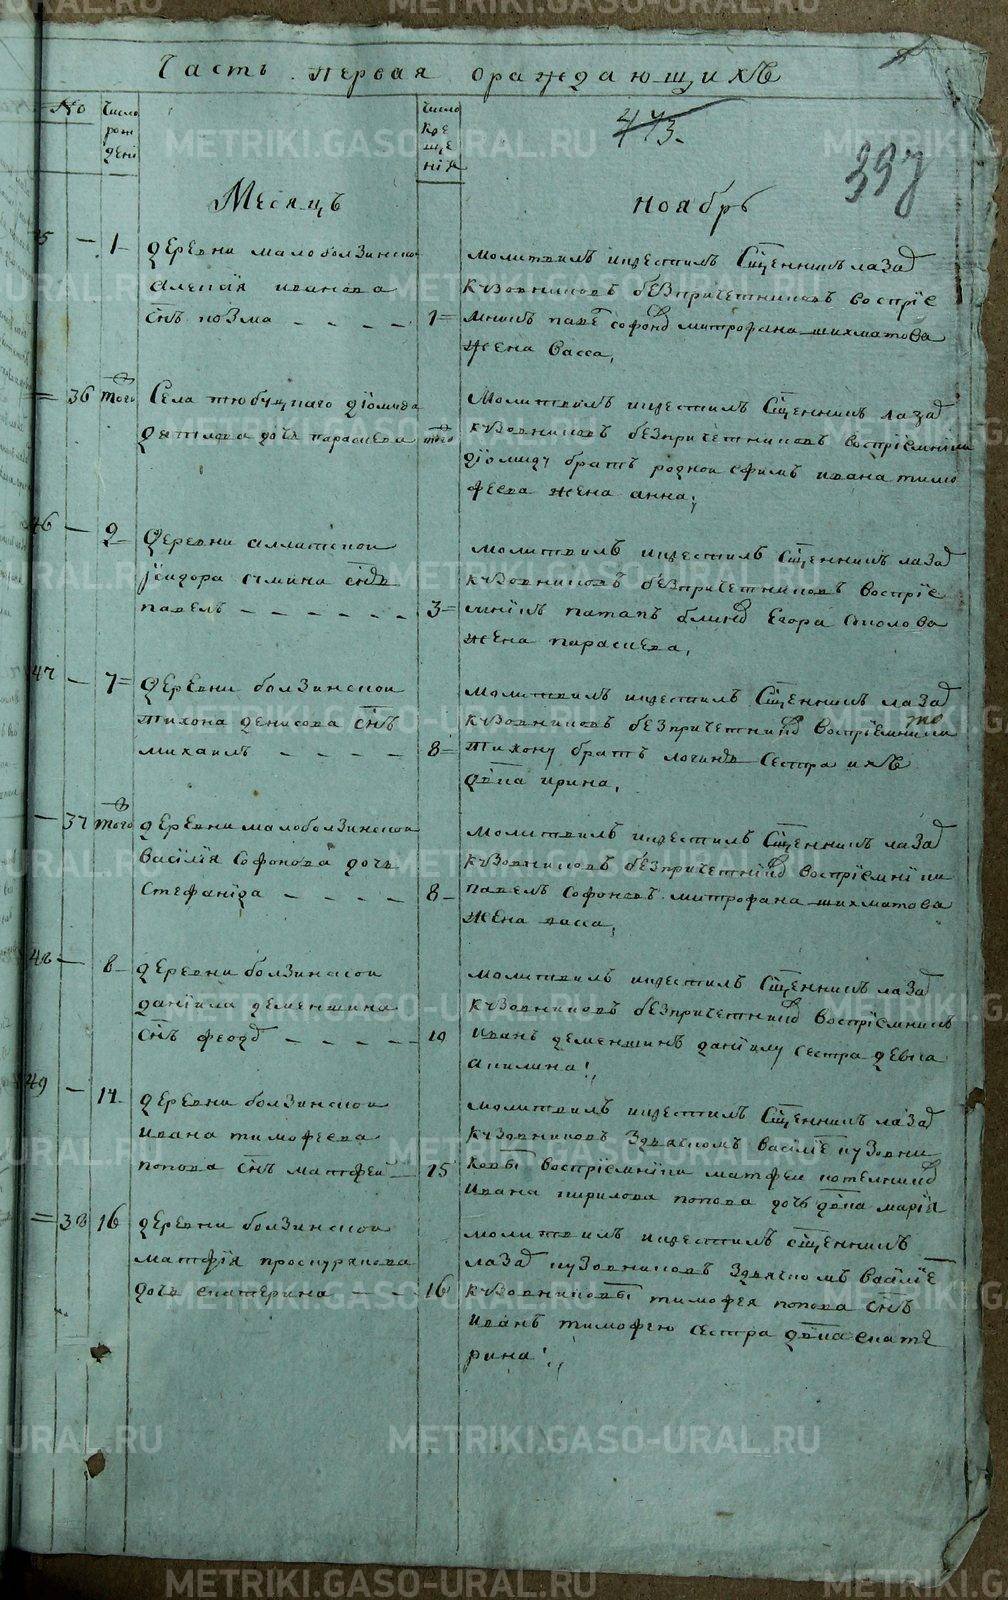 Часть первая о раждающихъ
473.
397
№
Число рождені
Число крещенія
Месяцъ
Ноябрь
1
деревни малоболзинско
Алексія иванова
снъ козма
1
молитвилъ икрестилъ Сщенникъ лазар
кузовниковъ безпричетниковъ воспріе
мникъ паве софон митрофана шихматова
жена васса,
36
того
Села тюбуцкаго діомида
дочь параскева
того
Молитвилъ икрестилъ Сщенникъ лазар
кузовниковъ безпричетниковъ воспріемники
діомиду братъ родной ефимъ ивана тимо
феева жена анна,
46
2
Деревни
Ісидора сумина снъ
павелъ
3
молитвилъ икрестилъ Сщенникъ лазар
кузовниковъ безпричетниковъ воспріе
мникъ патапъ блино Егора соколова
жена параскева,
47
7
Деревни болзинской
тихона денисова снъ
михаилъ
8
молитвилъ икрестилъ Сщенникъ лазар
кузовниковъ безпричетнико воспріемники
тихону братъ логинъ сестра ихъ
двка ирина,
37
того
деревни малоболзинской
васілія софонова дочь
Стефаніда
8
молитвилъ икрестилъ Сщенникъ лазар
кузовниковъ безпричетнико воспріемніки
павелъ софоновъ митрофана шихматова
жена васса,
48
8
деревни болзинской
даніила деменшина
снъ феодо
10
молитвилъ икрестилъ Сщенникъ лазар
кузовниковъ безпричетнико воспріемникъ
иванъ деменшинъ даніилу сестра девка
акилина,
49
14
деревни болзинской
ивана тимофеева
попова снъ матфей
15
молитвилъ икрестилъ Сщенникъ лазар
кузовниковъ здьячкомъ васіліе кузовни
ковы воспріемніки матфей котелнико
ивана кирилова попова дочь двка маріа
38
16
деревни болзинской
матфія проскурякова
дочь екатерина
16
молитвилъ икрестилъ сщенникъ
лазар кузовниковъ здьячкомъ васіліе
кузовниковы тимофея попова снъ
иванъ тимофею сестра двка екате
рина,
METRIKI.GASO-URAL.RU